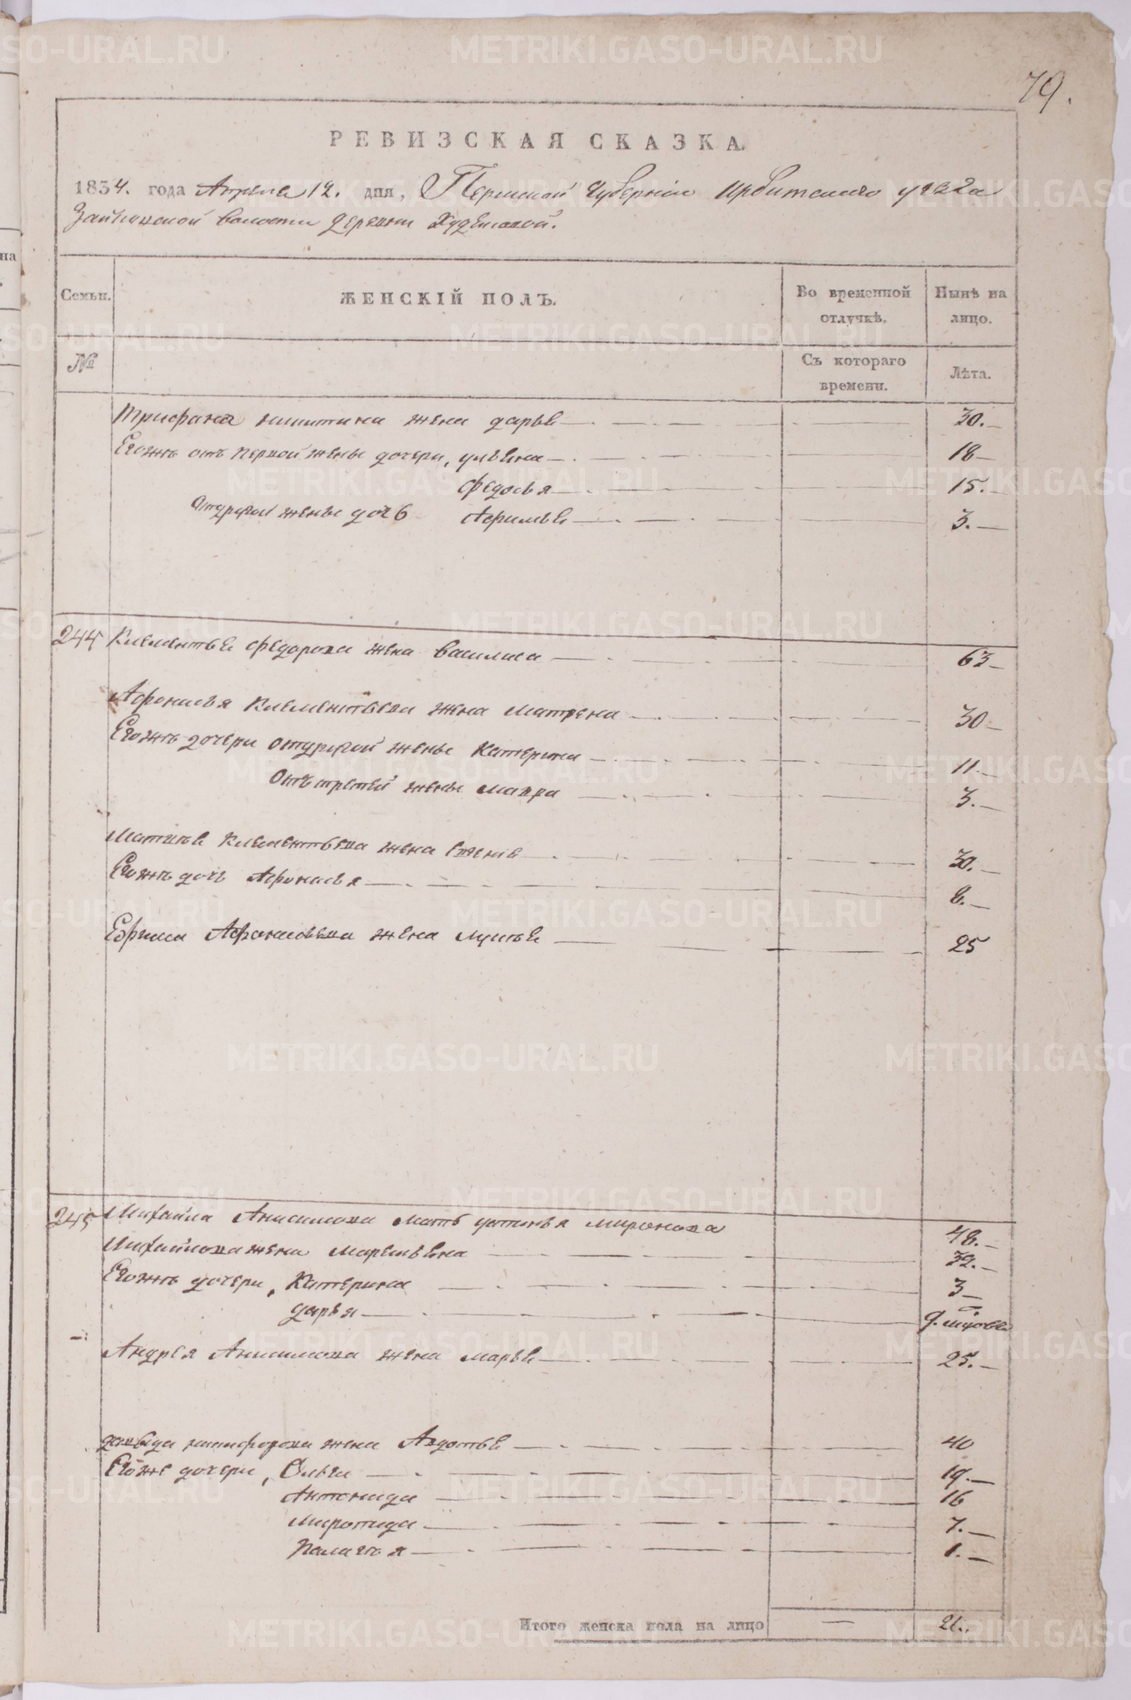 79.
РЕВИЗСКАЯ СКАЗКА.
1834. года Апреля 12. дня, Пермской Губернiи Ирбитскаго уезда
Зайковской волости деревни Худяковой.
Семьи. ЖЕНСКIЙ ПОЛЪ. Во временной отлучкѣ. Нынѣ на лицо.
№ Съ котораго времени. Лѣта.
Трифана никитина жена дарья 30.
Егожъ отъ первой жены дочери, ульяна 18
федосья 15.
отдругой жены дочь Афимья 3.
244 Клементья федорова жена василиса 63
Афонасья Клементьева жена матрена 30
Егожъ дочери отдругой жены Катерина 11
Отътретей жены мавра 3.
Матвея Клементьева жена 30.
Егожъ дочь Афонасья 8.
Ефима Афонасьева жена лукья 25
245 Михайла Анисимова мать миронова 48.
Михайлова жена Маремьяна 32.
Егожъ дочери, Катерина 3
дарья 9. месяцов
Андрея Анисимова жена марья 25.
давыда никифорова жена Авдотья 40
Егоже дочери, Ольга 19.
Антонида 16
миропида 7.
Палагея 1.
Итого женска пола на лицо — 21.
METRIKI.GASO-URAL.RU